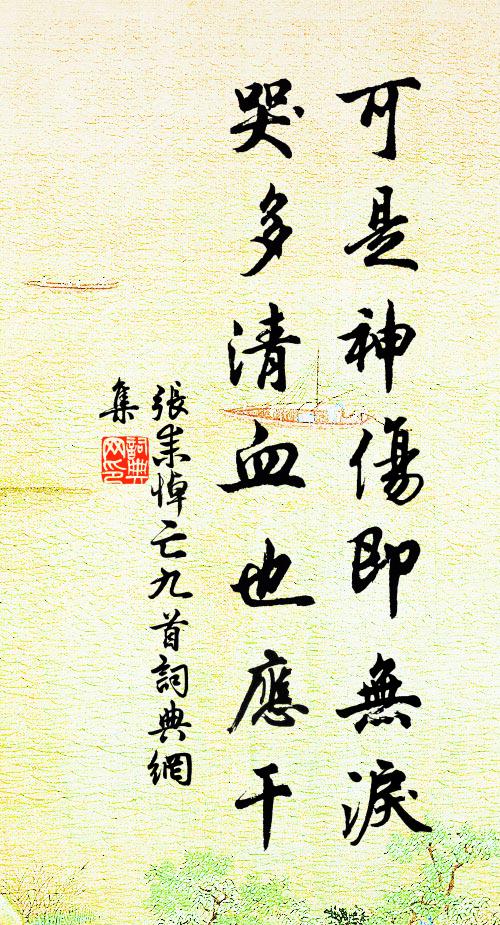 可是神傷即無淚
哭多清血也應干
張耒悼亡九首詞典網
集
詞典网印